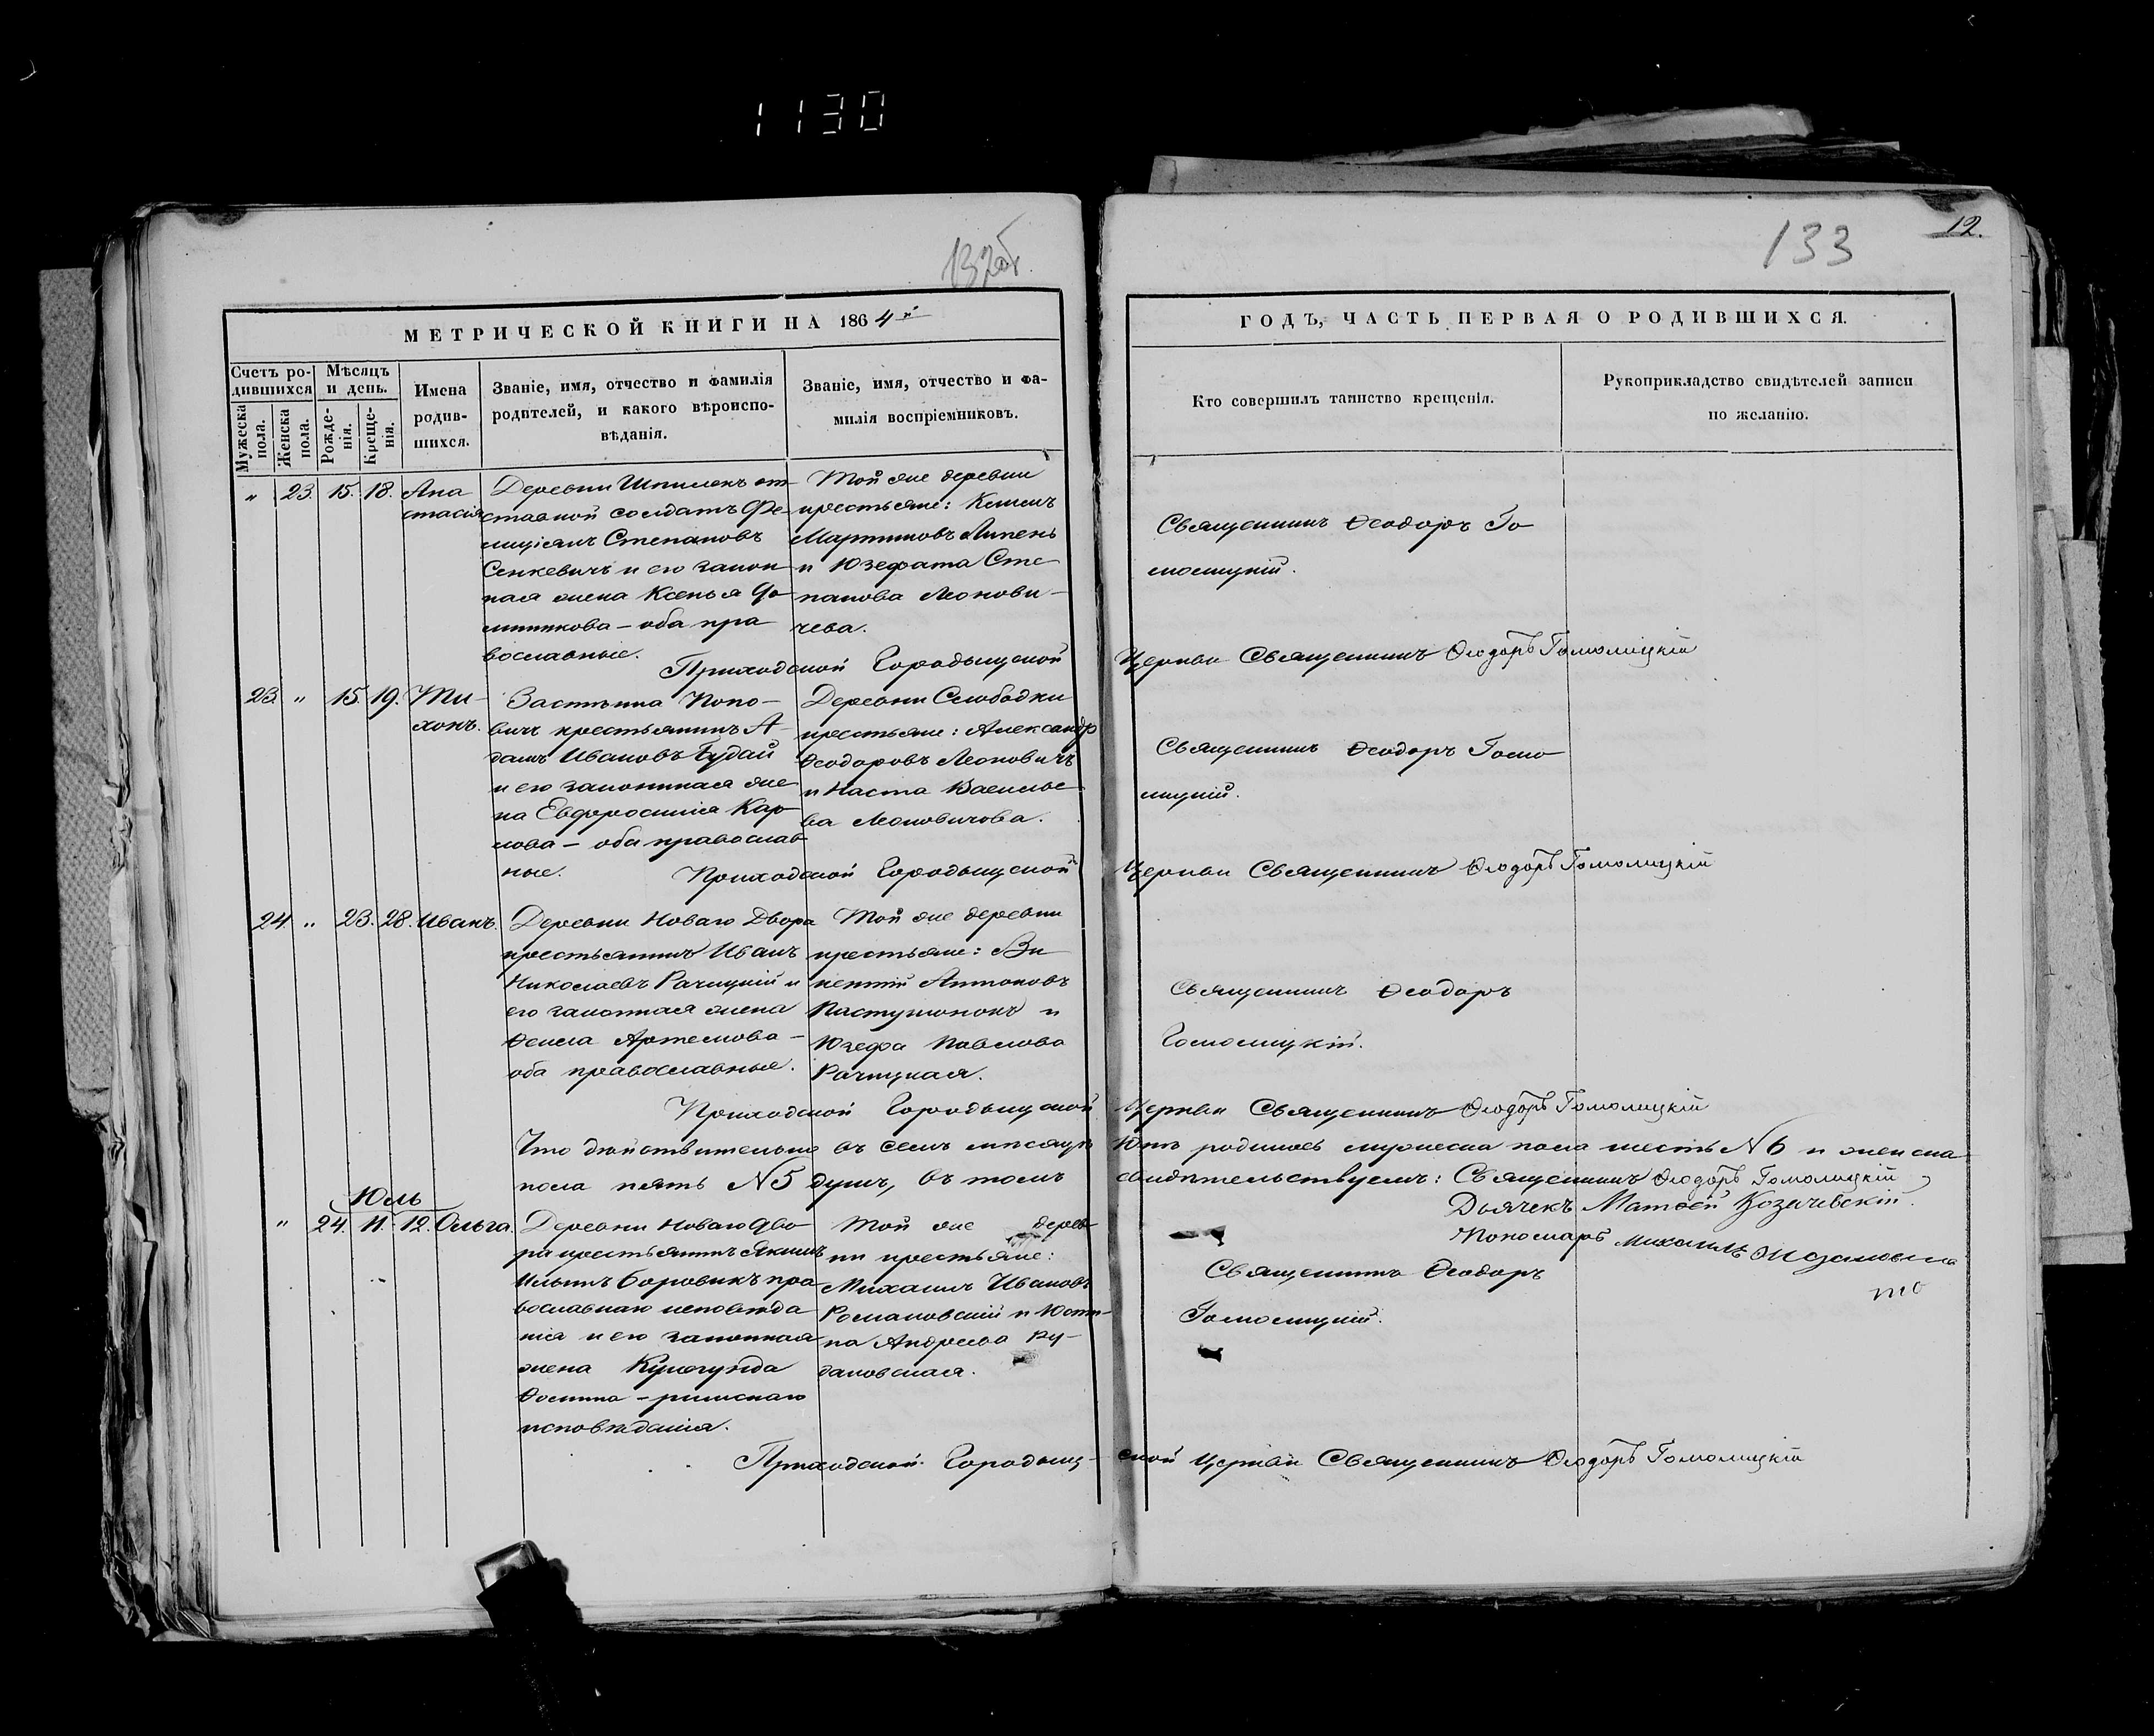 1130
132об.
133
12.
МЕТРИЧЕСКОЙ КНИГИ НА 1864й
ГОДЪ, ЧАСТЬ ПЕРВАЯ О РОДИВШИХСЯ.
Счетъ ро-
дившихся
Мужеска
пола.
Женска
пола.
Мѣсяцъ
и день.
Рожде-
нія.
Креще-
нія.
Имена
родив-
шихся.
Званіе, имя, отчество и фамилія
родителей, и какого вѣроиспо-
вѣданія.
Званіе, имя, отчество и фа-
милія воспріемниковъ.
Кто совершилъ таинство крещенія.
Рукоприкладство свидѣтелей записи
по желанію.
" 23. 15. 18. Ана
стасія
Деревни Шпилекъ от
ставной солдатъ Фе
лиціянъ Степановъ
Сенкевичъ и его закон
ная жена Ксенья До
миникова – оба пра
вославные.
Той же деревни
крестьяне:
Мартиновъ Липень
и Юзефата Сте
панова Леонови-
чева.
Священникъ Ѳеодоръ Го
молицкій.
Приходской Городыщской
Церкви Священникъ Ѳеодоръ Гомолицкій
23. " 15. 19. Ти-
хонъ.
Застѣнка Попо-
вичъ крестьянинъ А
дамъ Ивановъ Будай
и его законная же
на Евфросинія Кар
лова – оба православ
ные.
Деревни Слободки
крестьяне: Александръ
Ѳеодоровъ Леоновичъ
и Наста Василье
ва Леоновичова.
Священникъ Ѳеодоръ Гомо
лицкій.
Приходской Городыщской
Церкви Священникъ Ѳеодоръ Гомолицкій
24. " 23. 28. Иванъ.
Деревни Новаго Двора
крестьянинъ Иванъ
Николаевъ Рачицкій и
его законная жена
Ѳекла Артемова –
оба православные.
Той же деревни
крестьяне: Ви
кентій Антоновъ
Пастушонокъ и
Юзефа Павлова
Рачицкая.
Священникъ Ѳеодоръ
Гомолицкій.
Приходской Городыщской
Церкви Священникъ Ѳеодоръ Гомолицкій
Что дѣйствительно въ семъ мѣсяцѣ
Юнѣ родилось мужеска пола шесть N6 и женска
пола пять N5 душъ, въ томъ
свидѣтельствуемъ: Священникъ Ѳеодоръ Гомолицкій
Дьячекъ Матѳей Козачевскій.
Пономарь Михаилъ
Юль
" 24. 11. 12. Ольга.
Деревни Новаго Дво
ра крестьянинъ Якимъ
Ильинъ Боровикъ пра
вославнаго исповѣда
нія и его законная
жена Кунегунда
Ѳомина – римскаго
исповѣданія.
Той же дерев
ни крестьяне:
Михаилъ Ивановъ
Романовскій и Юсти-
на Андреева Ру-
дановская.
Священникъ Ѳеодоръ
Гомолицкій.
Приходской Городыщ-
ской Церкви Священникъ Ѳеодоръ Гомолицкій